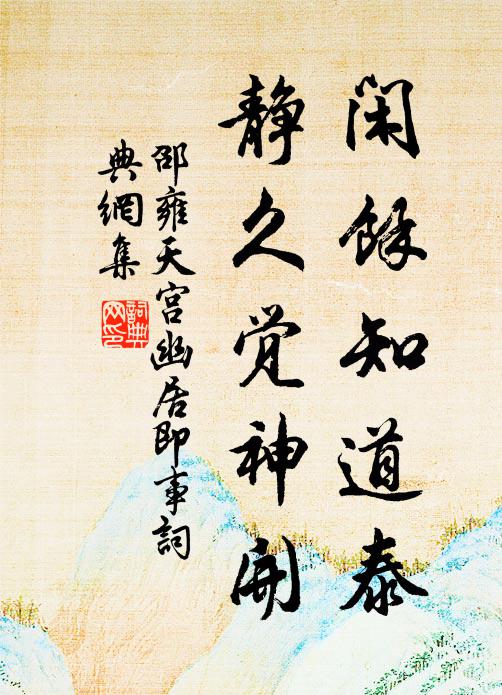 闲馀知道泰
静久觉神开
邵雍天宫幽居即事词
典網集
詞典
网印